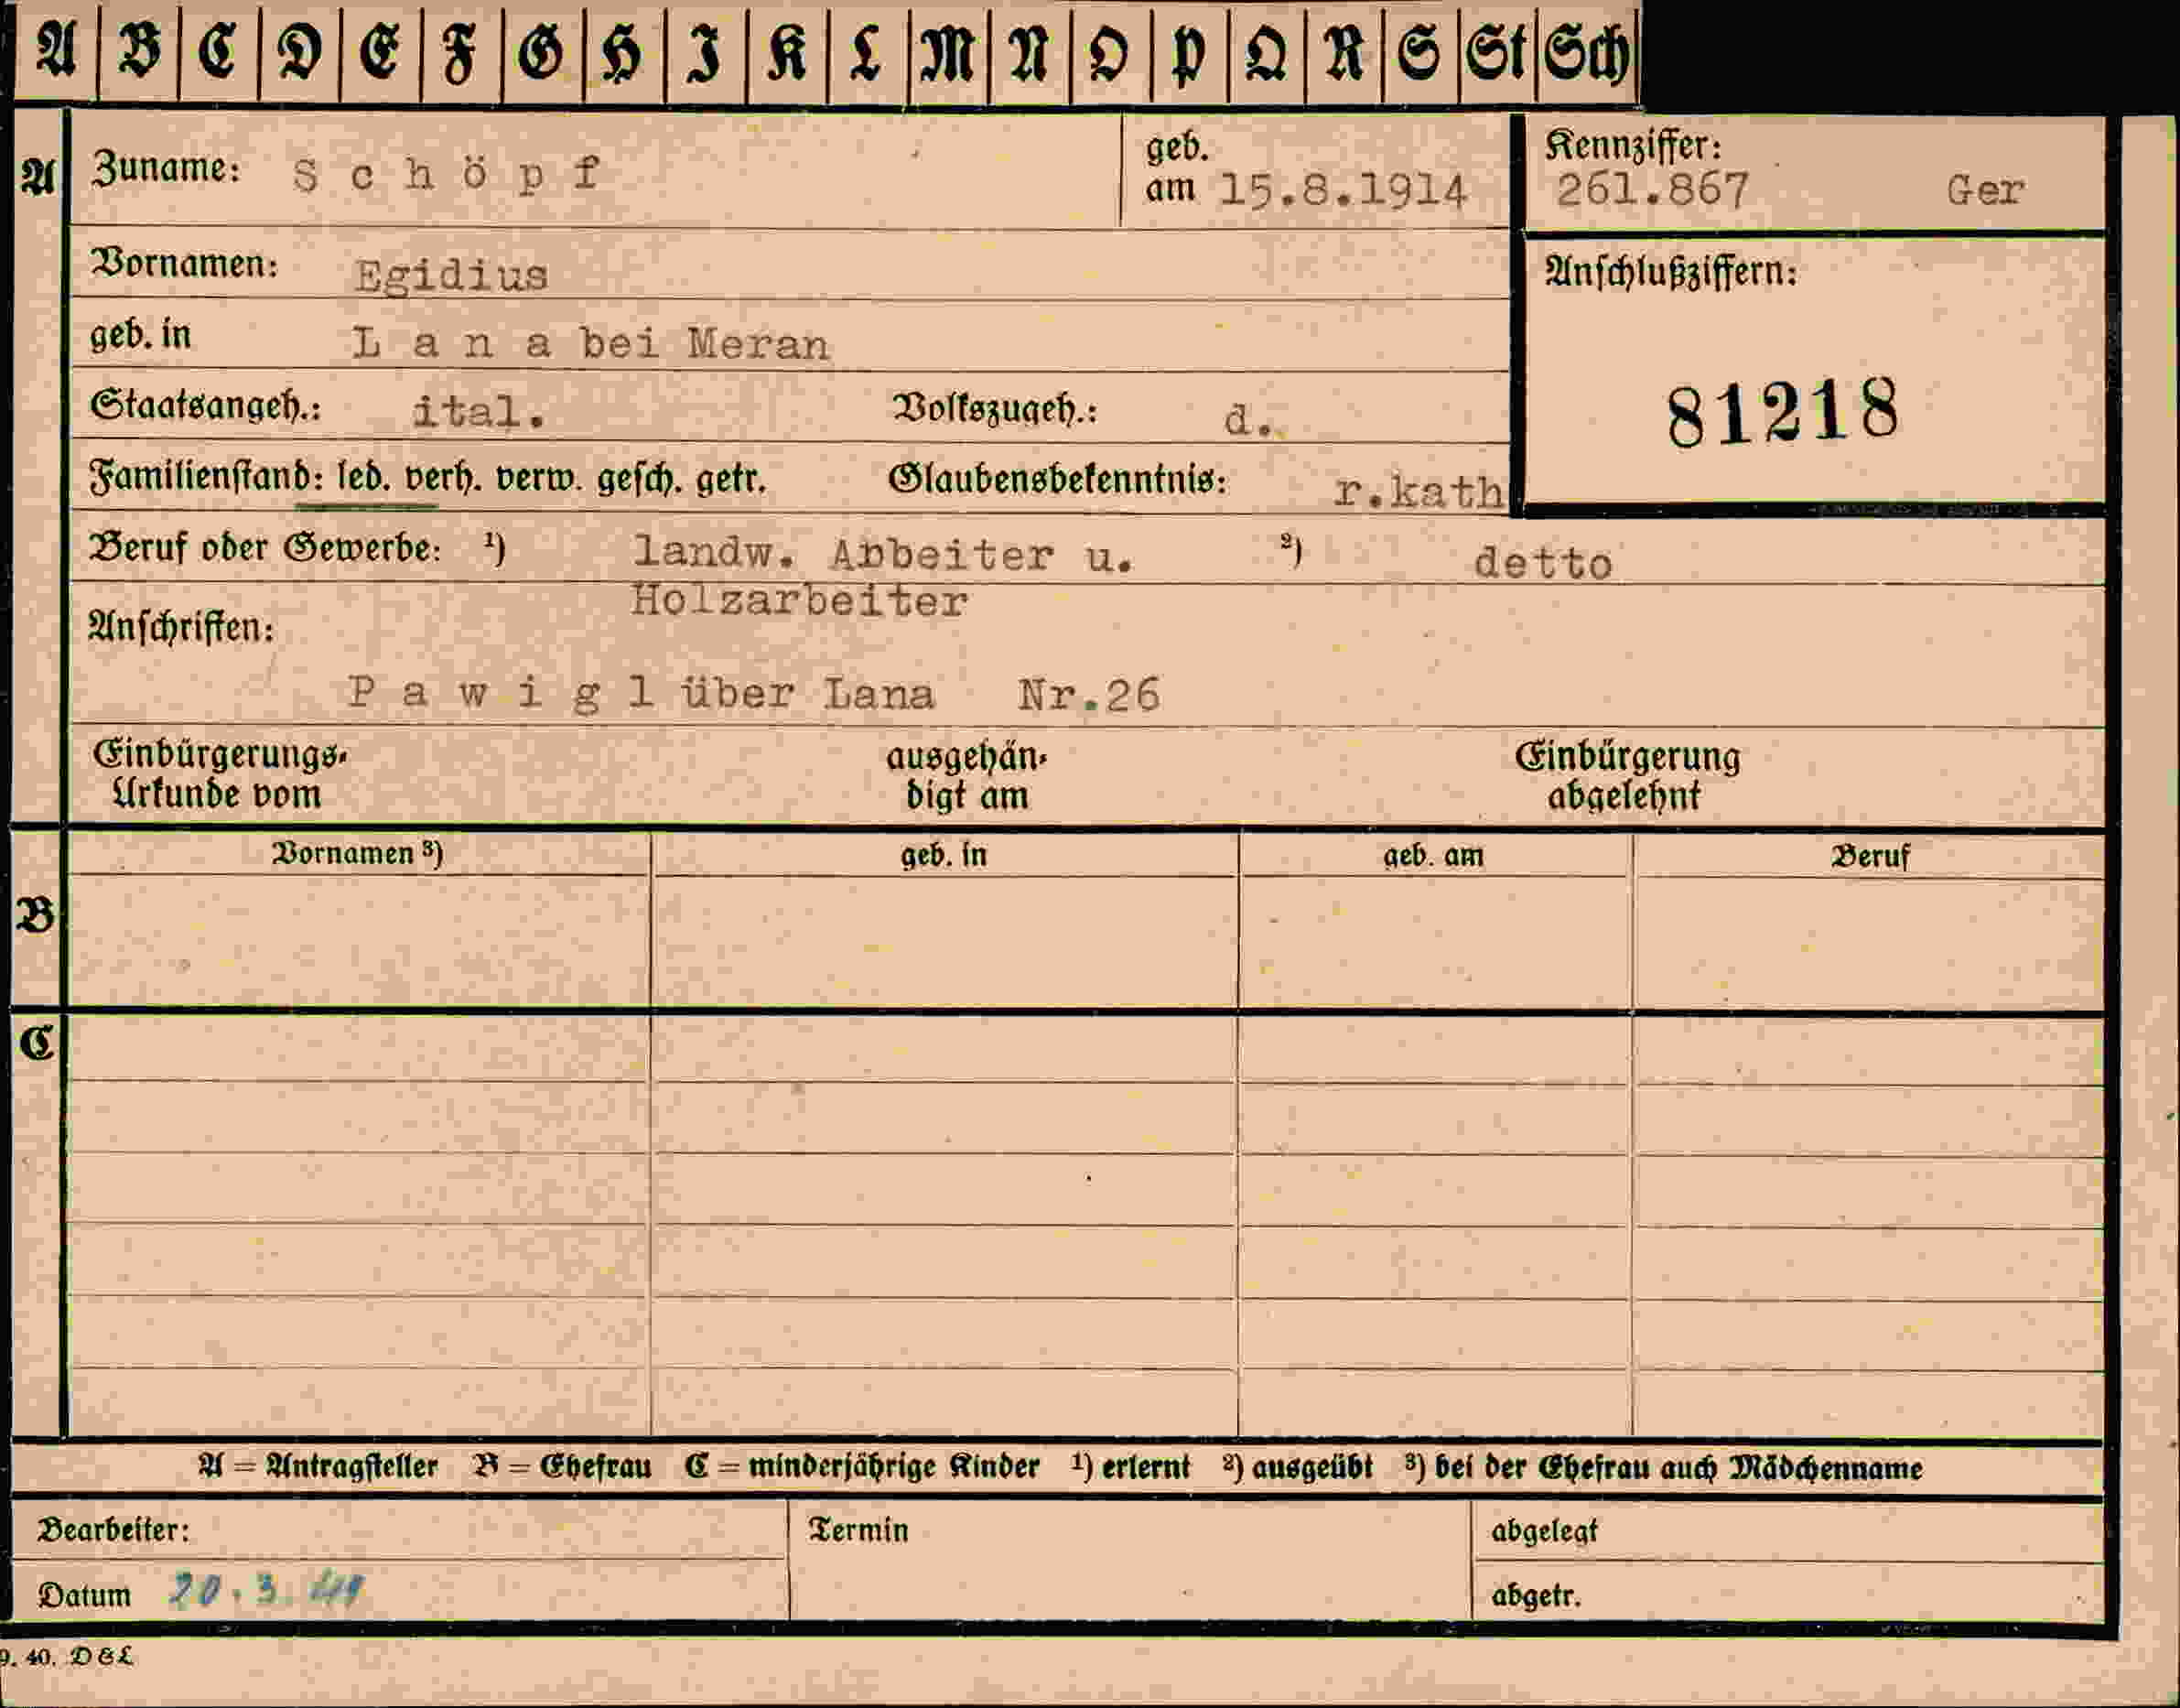 A B C D E F G H I K L M N O P Q R S St Sch
A Zuname: S c h ö p f geb. am 15.8.1914 Kennziffer: 261.867 Ger
Vornamen: Egidius Anschlußziffern:
geb. in L a n a bei Meran
81218
Staatsangeh.: ital. Volkszugeh.: d.
Familienstand: led. verh. verw. gesch. getr. Glaubensbekenntnis: r.kath
Beruf oder Gewerbe: ¹) landw. Arbeiter u. ²) detto
Holzarbeiter
Anschriften:
P a w i g l über Lana Nr.26
Einbürgerungs- ausgehän- Einbürgerung
Urkunde vom digt am abgelehnt
Vornamen ³) geb. in geb. am Beruf
B
C
A = Antragsteller B = Ehefrau C = minderjährige Kinder ¹) erlernt ²) ausgeübt ³) bei der Ehefrau auch Mädchenname
Bearbeiter: Termin abgelegt
Datum 20.3. abgetr.
9. 40. D & L